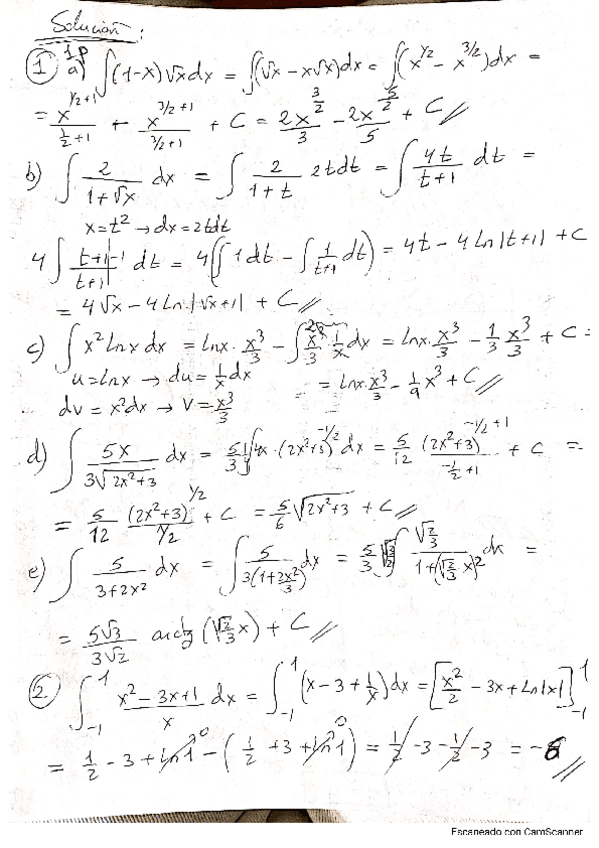 Solución:
① 1p a) ∫(1-x)√x dx = ∫(√x - x√x)dx = ∫(x^{1/2} - x^{3/2})dx =
= x^{1/2+1}/(1/2+1) + x^{3/2+1}/(3/2+1) + C = 2x^{3/2}/3 - 2x^{5/2}/5 + C //
b) ∫ 2/(1+√x) dx = ∫ 2/(1+t) 2tdt = ∫ 4t/(t+1) dt =
x=t² → dx=2tdt
4∫ (t+1-1)/(t+1) dt = 4(∫1dt - ∫ 1/(t+1) dt) = 4t - 4Ln|t+1| + C
= 4√x - 4Ln|√x+1| + C //
c) ∫x² lnx dx = lnx · x³/3 - ∫ x³/3 · 1/x dx = lnx · x³/3 - 1/3 x³/3 + C =
u=lnx → du=1/x dx = lnx · x³/3 - 1/9 x³ + C //
dv=x²dx → v=x³/3
d) ∫ 5x/(3√(2x²+3)) dx = 5/3 1/4 ∫4x·(2x²+3)^{-1/2} dx = 5/12 (2x²+3)^{-1/2+1}/(-1/2+1) + C =
= 5/12 (2x²+3)^{1/2}/(1/2) + C = 5/6 √(2x²+3) + C //
e) ∫ 5/(3+2x²) dx = ∫ 5/(3(1+2x²/3)) dx = 5/3 √(3/2) ∫ √(2/3)/(1+(√(2/3) x)²) dx =
= 5√3/(3√2) arctg (√(2/3) x) + C //
② ∫_{-1}^{1} (x²-3x+1)/x dx = ∫_{-1}^{1} (x-3+1/x)dx = [x²/2 - 3x + Ln|x|]_{-1}^{1}
= 1/2 - 3 + ln1 0 - (1/2 + 3 + ln1 0) = 1/2 - 3 - 1/2 - 3 = -6 //
Escaneado con CamScanner